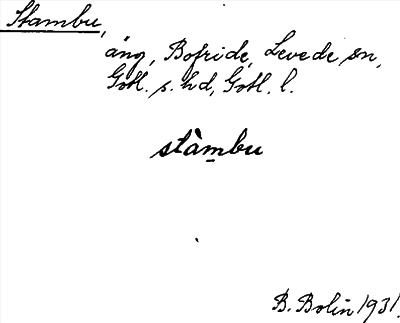 Stambu,
äng, Bofride, Levede sn,
Gotl. s. hd, Gotl. l.
stàmbu
B. Bolin 1931.